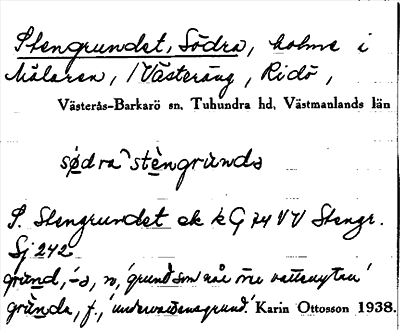 Stengrundet, Södra, holme i
Mälaren, /Västeräng, Ridö,
Västerås-Barkarö sn, Tuhundra hd, Västmanlands län
sødra stèngrùnda
S. Stengrundet ek k G 74 V V Stengr.
Sj 242
grund, -, n, 'grund som når vattenytan'
grunda, f., 'undervattensgrund'. Karin Ottosson 1938.